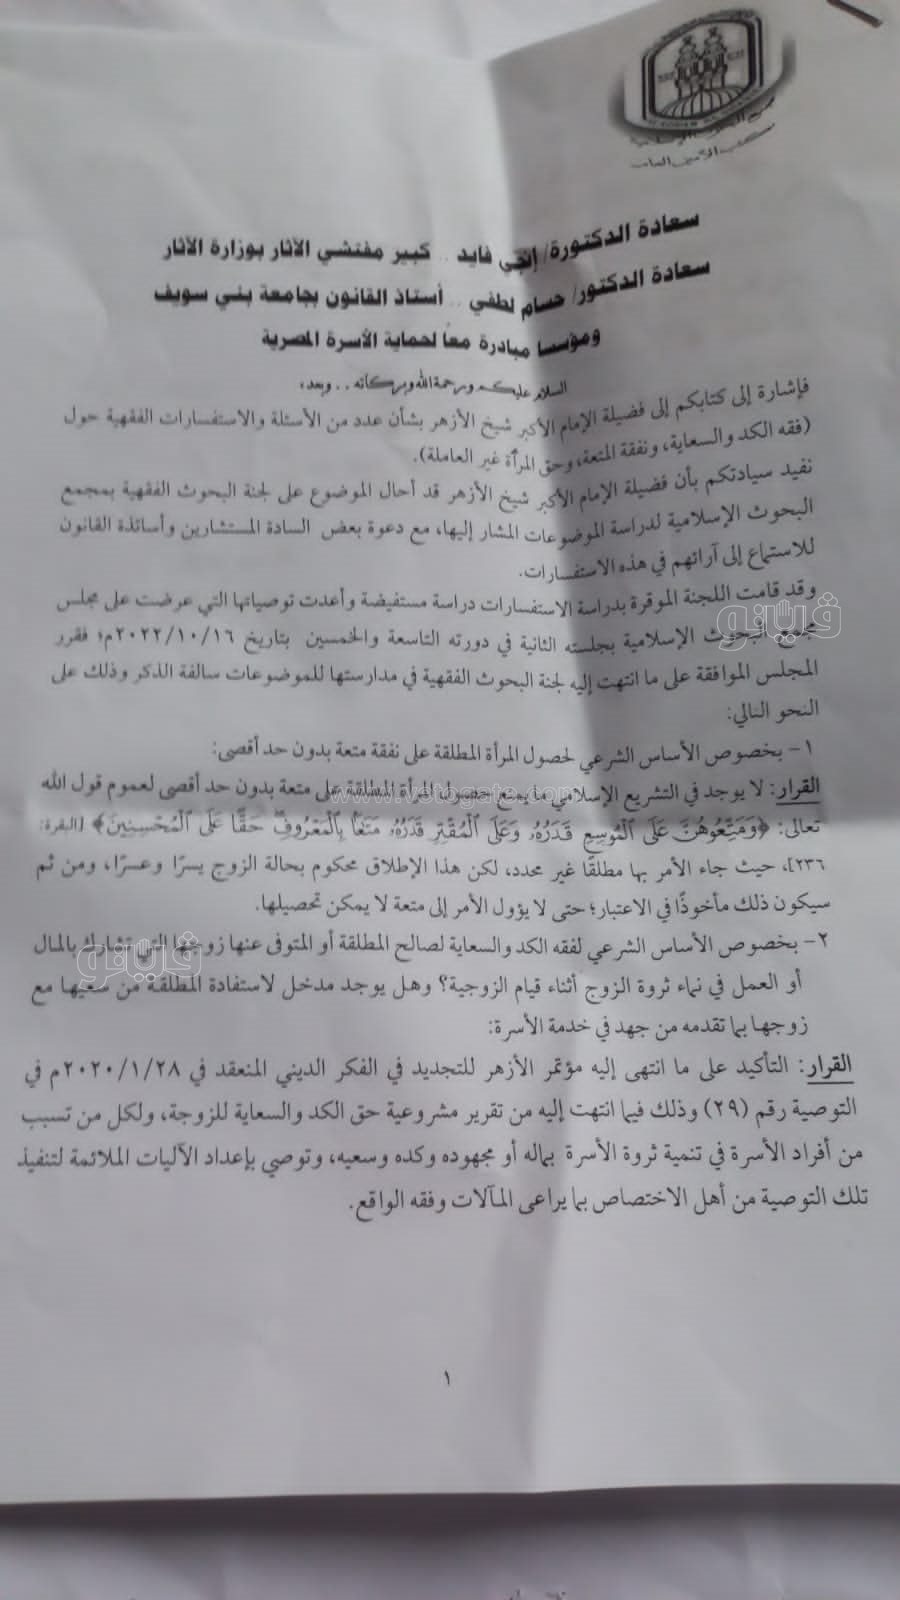 مجمع البحوث الإسلامية
مكتب الأمين العام
سعادة الدكتورة/ إنجي فايد .. كبير مفتشي الآثار بوزارة الآثار
سعادة الدكتور/ حسام لطفي .. أستاذ القانون بجامعة بني سويف
ومؤسسا مبادرة معاً لحماية الأسرة المصرية
السلام عليكم ورحمة الله وبركاته .. وبعد،
فإشارة إلى كتابكم إلى فضيلة الإمام الأكبر شيخ الأزهر بشأن عدد من الأسئلة والاستفسارات الفقهية حول
(فقه الكد والسعاية، ونفقة المتعة، وحق المرأة غير العاملة).
نفيد سيادتكم بأن فضيلة الإمام الأكبر شيخ الأزهر قد أحال الموضوع على لجنة البحوث الفقهية بمجمع
البحوث الإسلامية لدراسة الموضوعات المشار إليها، مع دعوة بعض السادة المستشارين وأساتذة القانون
للاستماع إلى آرائهم في هذه الاستفسارات.
وقد قامت اللجنة الموقرة بدراسة الاستفسارات دراسة مستفيضة وأعدت توصياتها التي عرضت على مجلس
مجمع البحوث الإسلامية بجلسته الثانية في دورته التاسعة والخمسين بتاريخ ٢٠٢٢/١٠/١٦م؛ فقرر
المجلس الموافقة على ما انتهت إليه لجنة البحوث الفقهية في مدارستها للموضوعات سالفة الذكر وذلك على
النحو التالي:
١- بخصوص الأساس الشرعي لحصول المرأة المطلقة على نفقة متعة بدون حد أقصى:
القرار: لا يوجد في التشريع الإسلامي ما يمنع حصول المرأة المطلقة على متعة بدون حد أقصى لعموم قول الله
تعالى: ﴿وَمَتِّعُوهُنَّ عَلَى ٱلْمُوسِعِ قَدَرُهُۥ وَعَلَى ٱلْمُقْتِرِ قَدَرُهُۥ مَتَٰعًۢا بِٱلْمَعْرُوفِ حَقًّا عَلَى ٱلْمُحْسِنِينَ﴾ [البقرة:
٢٣٦]، حيث جاء الأمر بها مطلقًا غير محدد، لكن هذا الإطلاق محكوم بحالة الزوج يسرًا وعسرًا، ومن ثم
سيكون ذلك مأخوذًا في الاعتبار؛ حتى لا يؤول الأمر إلى متعة لا يمكن تحصيلها.
٢- بخصوص الأساس الشرعي لفقه الكد والسعاية لصالح المطلقة أو المتوفى عنها زوجها التي تشارك بالمال
أو العمل في نماء ثروة الزوج أثناء قيام الزوجية؟ وهل يوجد مدخل لاستفادة المطلقة من سعيها مع
زوجها بما تقدمه من جهد في خدمة الأسرة:
القرار: التأكيد على ما انتهى إليه مؤتمر الأزهر للتجديد في الفكر الديني المنعقد في ٢٠٢٠/١/٢٨م في
التوصية رقم (٢٩) وذلك فيما انتهت إليه من تقرير مشروعية حق الكد والسعاية للزوجة، ولكل من تسبب
من أفراد الأسرة في تنمية ثروة الأسرة بماله أو مجهوده وكده وسعيه، وتوصي بإعداد الآليات الملائمة لتنفيذ
تلك التوصية من أهل الاختصاص بما يراعى المآلات وفقه الواقع.
١
ڤيتو
www.vetogate.com
ڤيتو